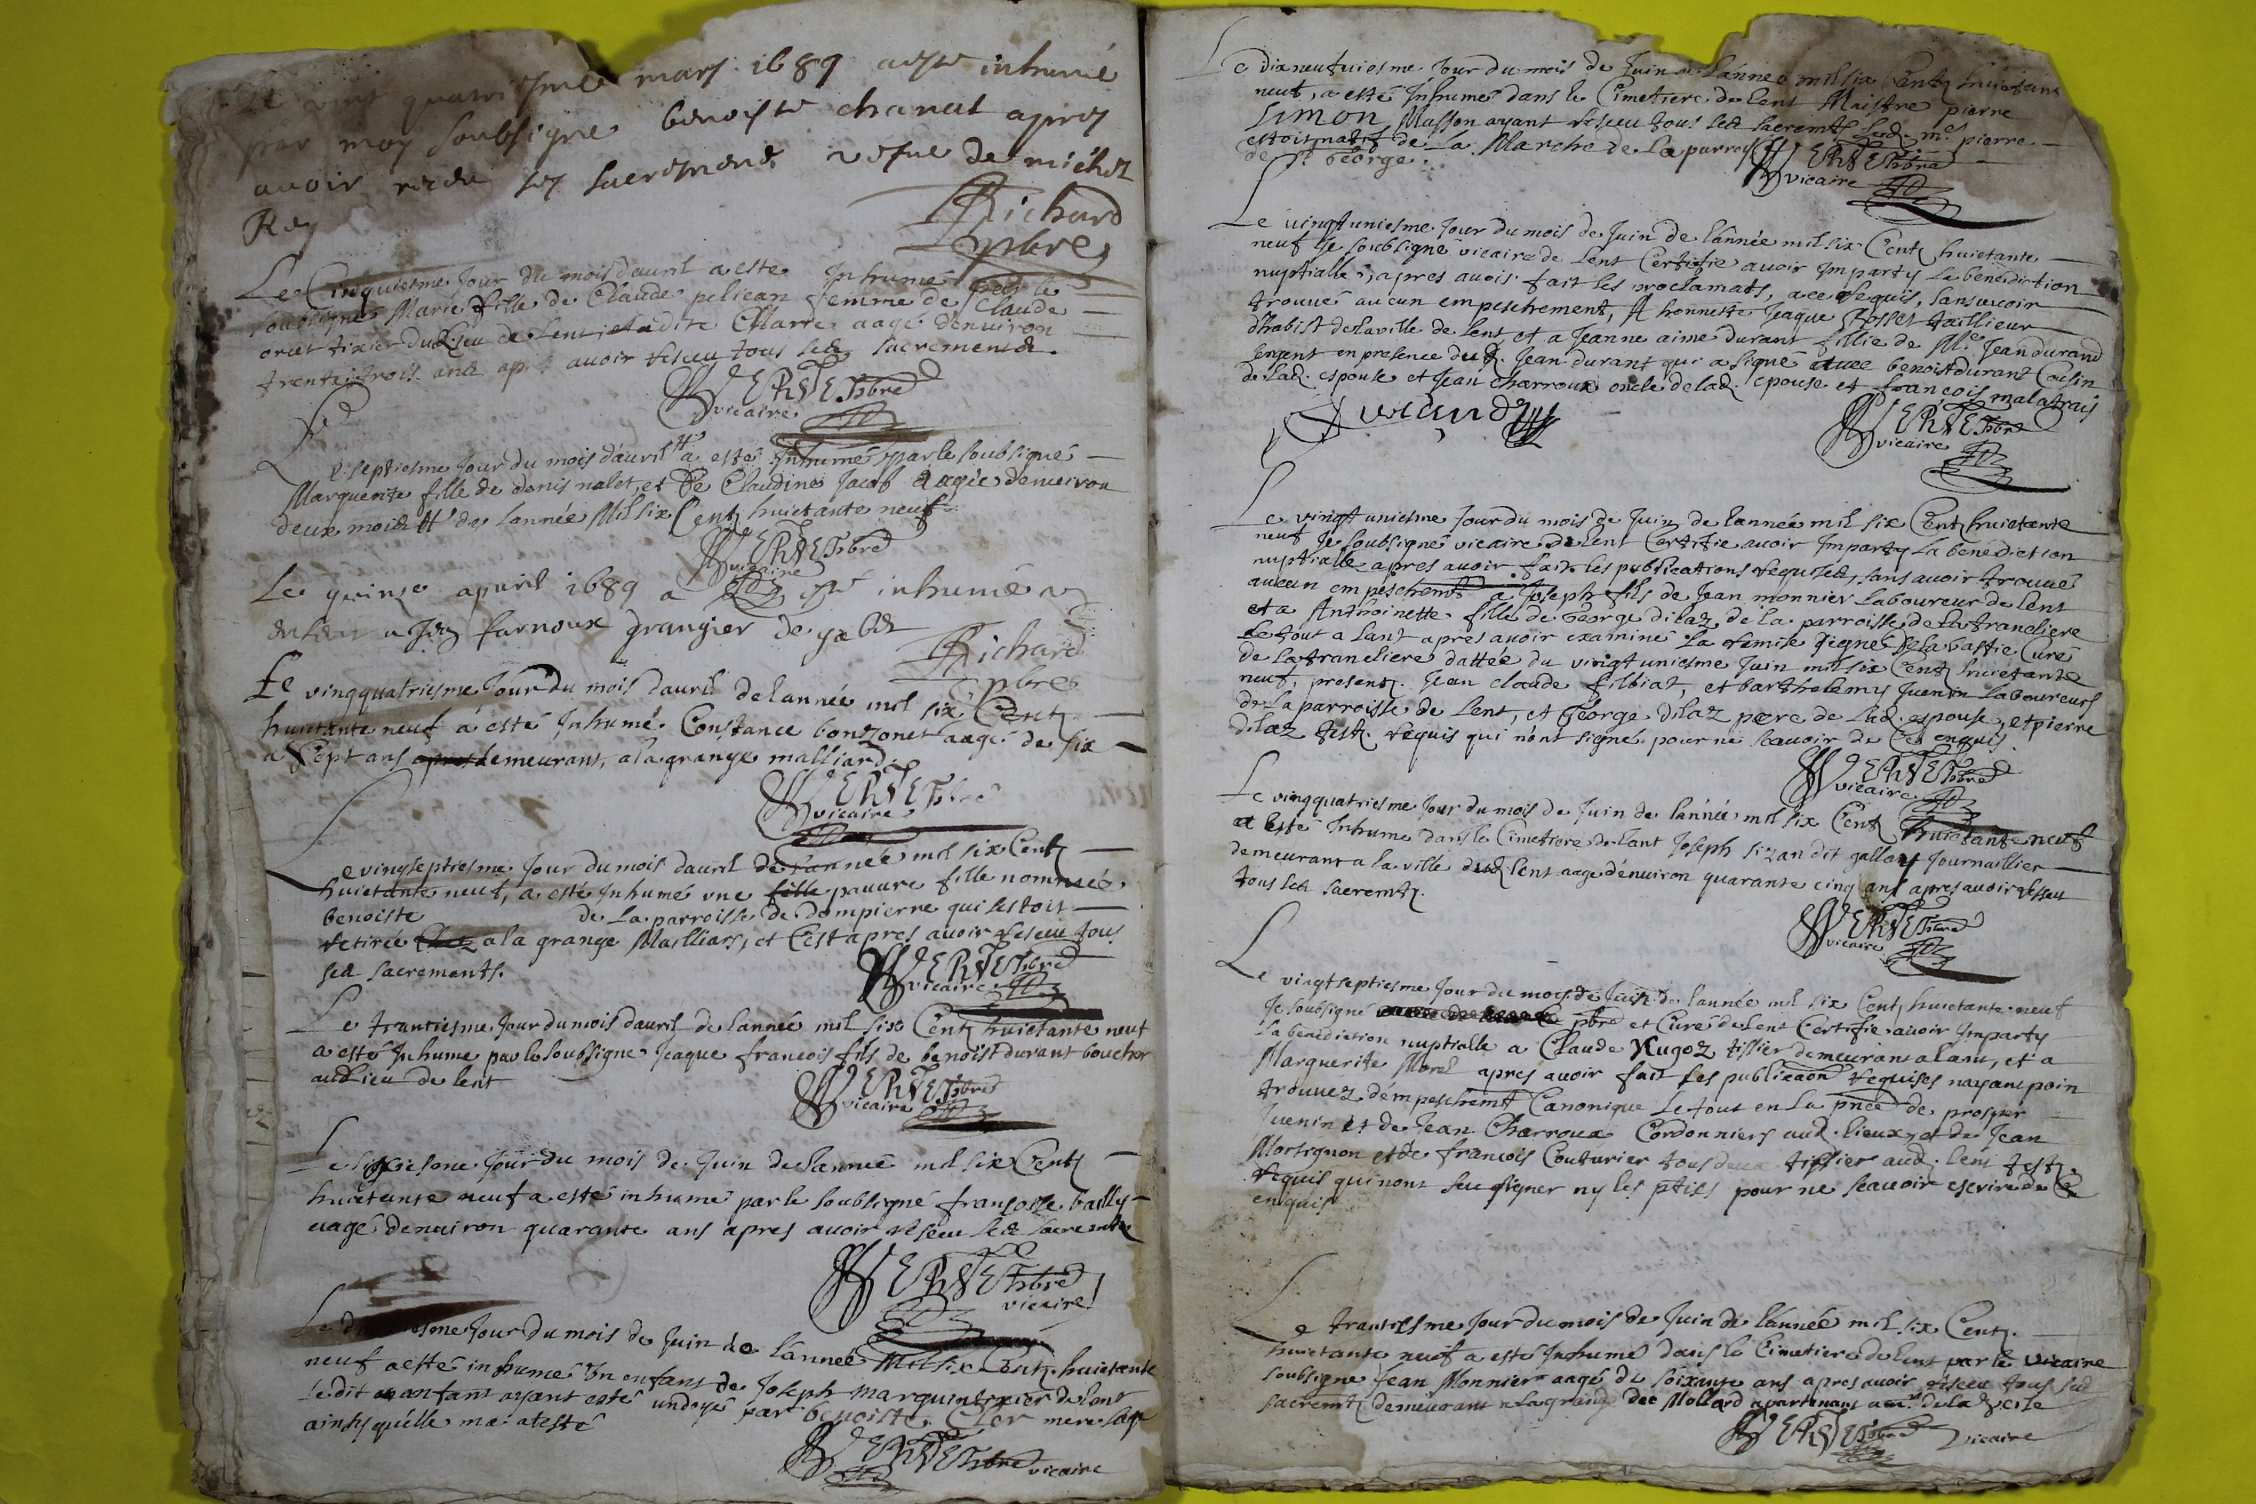 Le vint quatriesme mars 1689 a este inhumé
par moy soubsigne benoiste chanut apres
avoir receu ses sacremens vesue de michel
Rey
Richard
pbre
Le Cinquiesme Jour du mois d'auril a este Inhumé par le
soubsigné Marie fille de Claude pelican femme de Claude
tixier dud. lieu de Lent, ladite Marie aagé d'enuiron
trente trois ans apres auoir reseeu tous ses sacrements.
VERNE pbre
vicaire
Le septiesme Jour du mois d'auril a esté Inhumé par le soubsigné
Marguerite fille de denis nalet, et de Claudine Jacob aagée denuiron
deux mois de lannée Mil six Cent huictante neuf
VERNE pbre
vicaire
Le quinze apuril 1689 a esté inhumé
farnoux grangier de
Richard
pbre
Le vingquatriesme Jour du mois dauril de lannée mil six Cent
huictante neuf a esté Inhumé Constance bonzonet aagé de six
a Sept ans demeurant, a la grange malliard.
VERNE pbre
vicaire
Le vingseptiesme Jour du mois dauril de lannée mil six Cent
huictante neuf, a esté Inhumé vne fille pauure fille nommée
benoiste de la parroisse de dompierre qui sestoit
retirée chez a la grange Malliard, et Cest apres auoir reseeu tous
ses sacrements.
VERNE pbre
vicaire
Le trantiesme Jour du mois dauril de lannée mil six Cent huictante neuf
a esté Inhume par le soubsigne Jeaque francois fils de benoist durant boucher
aud. lieu de lent
VERNE pbre
vicaire
Le sixiesme Jour du mois de Juin de lannee mil six Cent
huictante neuf a esté inhumé par le soubsigné françoise bailly
aagé denuiron quarante ans apres auoir reseeu ses sacrements
VERNE pbre
vicaire
Le Jour du mois de Juin de l'année Mil six Cent huictante
neuf a esté inhumé Un enfant de Joseph marquin tixier de lent
ledit enfant ayant esté undoyé par benoiste Cler mere sage
ainsy qu'elle ma atesté
VERNE pbre vicaire
Le dixneufuiesme Jour du mois de Juin de L'année mil six Cent huictante
neuf, a esté Inhumé dans le Cimetiere de lent Maistre pierre
SIMON Masson ayant reseeu tous ses sacremts Led. me. pierre
estoit natif de La Marche de La parroisse
de St. George.
VERNE pbre
vicaire
Le vingtuniesme Jour du mois de Juin de l'année mil six Cent huictante
neuf Je soubsigné vicaire de lent Certifie auoir Imparty la benediction
nuptialle, apres auoir fait les proclamats, a ce requis, sans auoir
trouué aucun empeschement, A honneste Jeaque Rosset taillieur
d'habist de la ville de lent et a Jeanne aimé durant fillie de Me. Jean durand
sergent en presence dud. Jean durant qui a signé auec benoist durant Cousin
de Lad. espouse et Jean Charroux oncle de lad. epouse et françois malatrais
Durand
VERNE pbre
vicaire
Le vingt uniesme Jour du mois de Juin de lannée mil six Cent huictante
neuf Je soubsigné vicaire de lent Certifie auoir Imparty La benediction
nuptialle apres auoir fait les publications requises, sans auoir trouué
aucun empeschemt. a Joseph fils de Jean monnier laboureur de lent
et a Anthoinette fille de George dilaz, de la parroisse de La trancliere
le tout a lant apres auoir examiné la remise signée de la bastie Curé
de La trancliere dattée du vingtuniesme Juin mil six Cent huictante
neuf, present. Jean claude filliat, et barthelemy Juenin laboureurs
de La parroisse de Lent, et George dilaz pere de lad. espouse, et pierre
dilaz test. requis qui n'ont signé pour ne scauoir de Ce enquis.
VERNE pbre
vicaire
Le vingquatriesme Jour du mois de Juin de l'année mil six Cent huictante neuf
a esté Inhume dans le Cimetiere de lant Joseph sizan dit gallary Journaillier
demeurant a la ville dud. lent aagé d'enuiron quarante cinq ans apres auoir reseeu
tous ses sacremts.
VERNE pbre
vicaire
Le vingtseptiesme Jour du moys de Juin de l'année mil six Cent huictante neuf
Je soubsigné pbre et Curé de Lent Certifie auoir Imparty
la benediction nuptialle a Claude Hugoz tissier demeurant a lant, et a
Marguerite Morel apres auoir fait Les publicaons requises nayant poin
trouuez d'empeschemt Canonique Le tout en la pnce de prosper
Juenin et de Jean Charroux Cordonniers aud. lieux, et de Jean
Mortignon et de françois Couturier tous deux tissier aud. lent test.
requis qui nont sceu signer ny les pties pour ne scauoir escrire de Ce
enquis
Le trantiesme Jour du mois de Juin de l'année mil six Cent.
huictante neuf a esté Inhumé dans le Cimetiere de lent par le vicaire
soubsigne Jean Monnier aagé de soixante ans apres auoir reseeu tous ses
sacremts demeurant a la grange des Mollard apartenant a
VERNE pbre vicaire